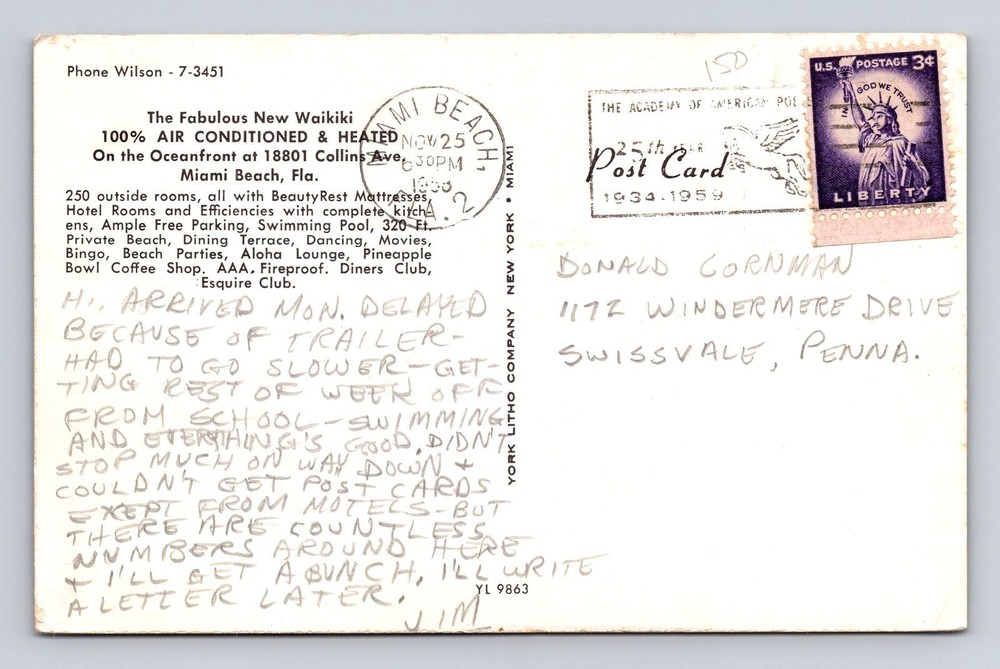 Phone Wilson - 7-3451
The Fabulous New Waikiki
100% AIR CONDITIONED & HEATED
On the Oceanfront at 18801 Collins Ave.
Miami Beach, Fla.
250 outside rooms, all with BeautyRest Mattresses,
Hotel Rooms and Efficiencies with complete kitch-
ens, Ample Free Parking, Swimming Pool, 320 Ft.
Private Beach, Dining Terrace, Dancing, Movies,
Bingo, Beach Parties, Aloha Lounge, Pineapple
Bowl Coffee Shop. AAA. Fireproof. Diners Club,
Esquire Club.
HI, ARRIVED MON. DELAYED
BECAUSE OF TRAILER-
HAD TO GO SLOWER-GET-
TING REST OF WEEK OFF
FROM SCHOOL-SWIMMING
AND EVERYTHING'S GOOD. DIDN'T
STOP MUCH ON WAY DOWN +
COULDN'T GET POST CARDS
EXEPT FROM MOTELS-BUT
THERE ARE COUNTLESS
NUMBERS AROUND HERE
+ I'LL GET A BUNCH. I'LL WRITE
A LETTER LATER.
JIM
MIAMI BEACH,
NOV 25
630PM
1958
LA. 2
YORK LITHO COMPANY NEW YORK • MIAMI
YL 9863
150
THE ACADEMY OF AMERICAN POE
25th YEAR
Post Card
1934-1959
U.S. POSTAGE 3¢
IN GOD WE TRUST
LIBERTY
DONALD CORNMAN
1172 WINDERMERE DRIVE
SWISSVALE, PENNA.